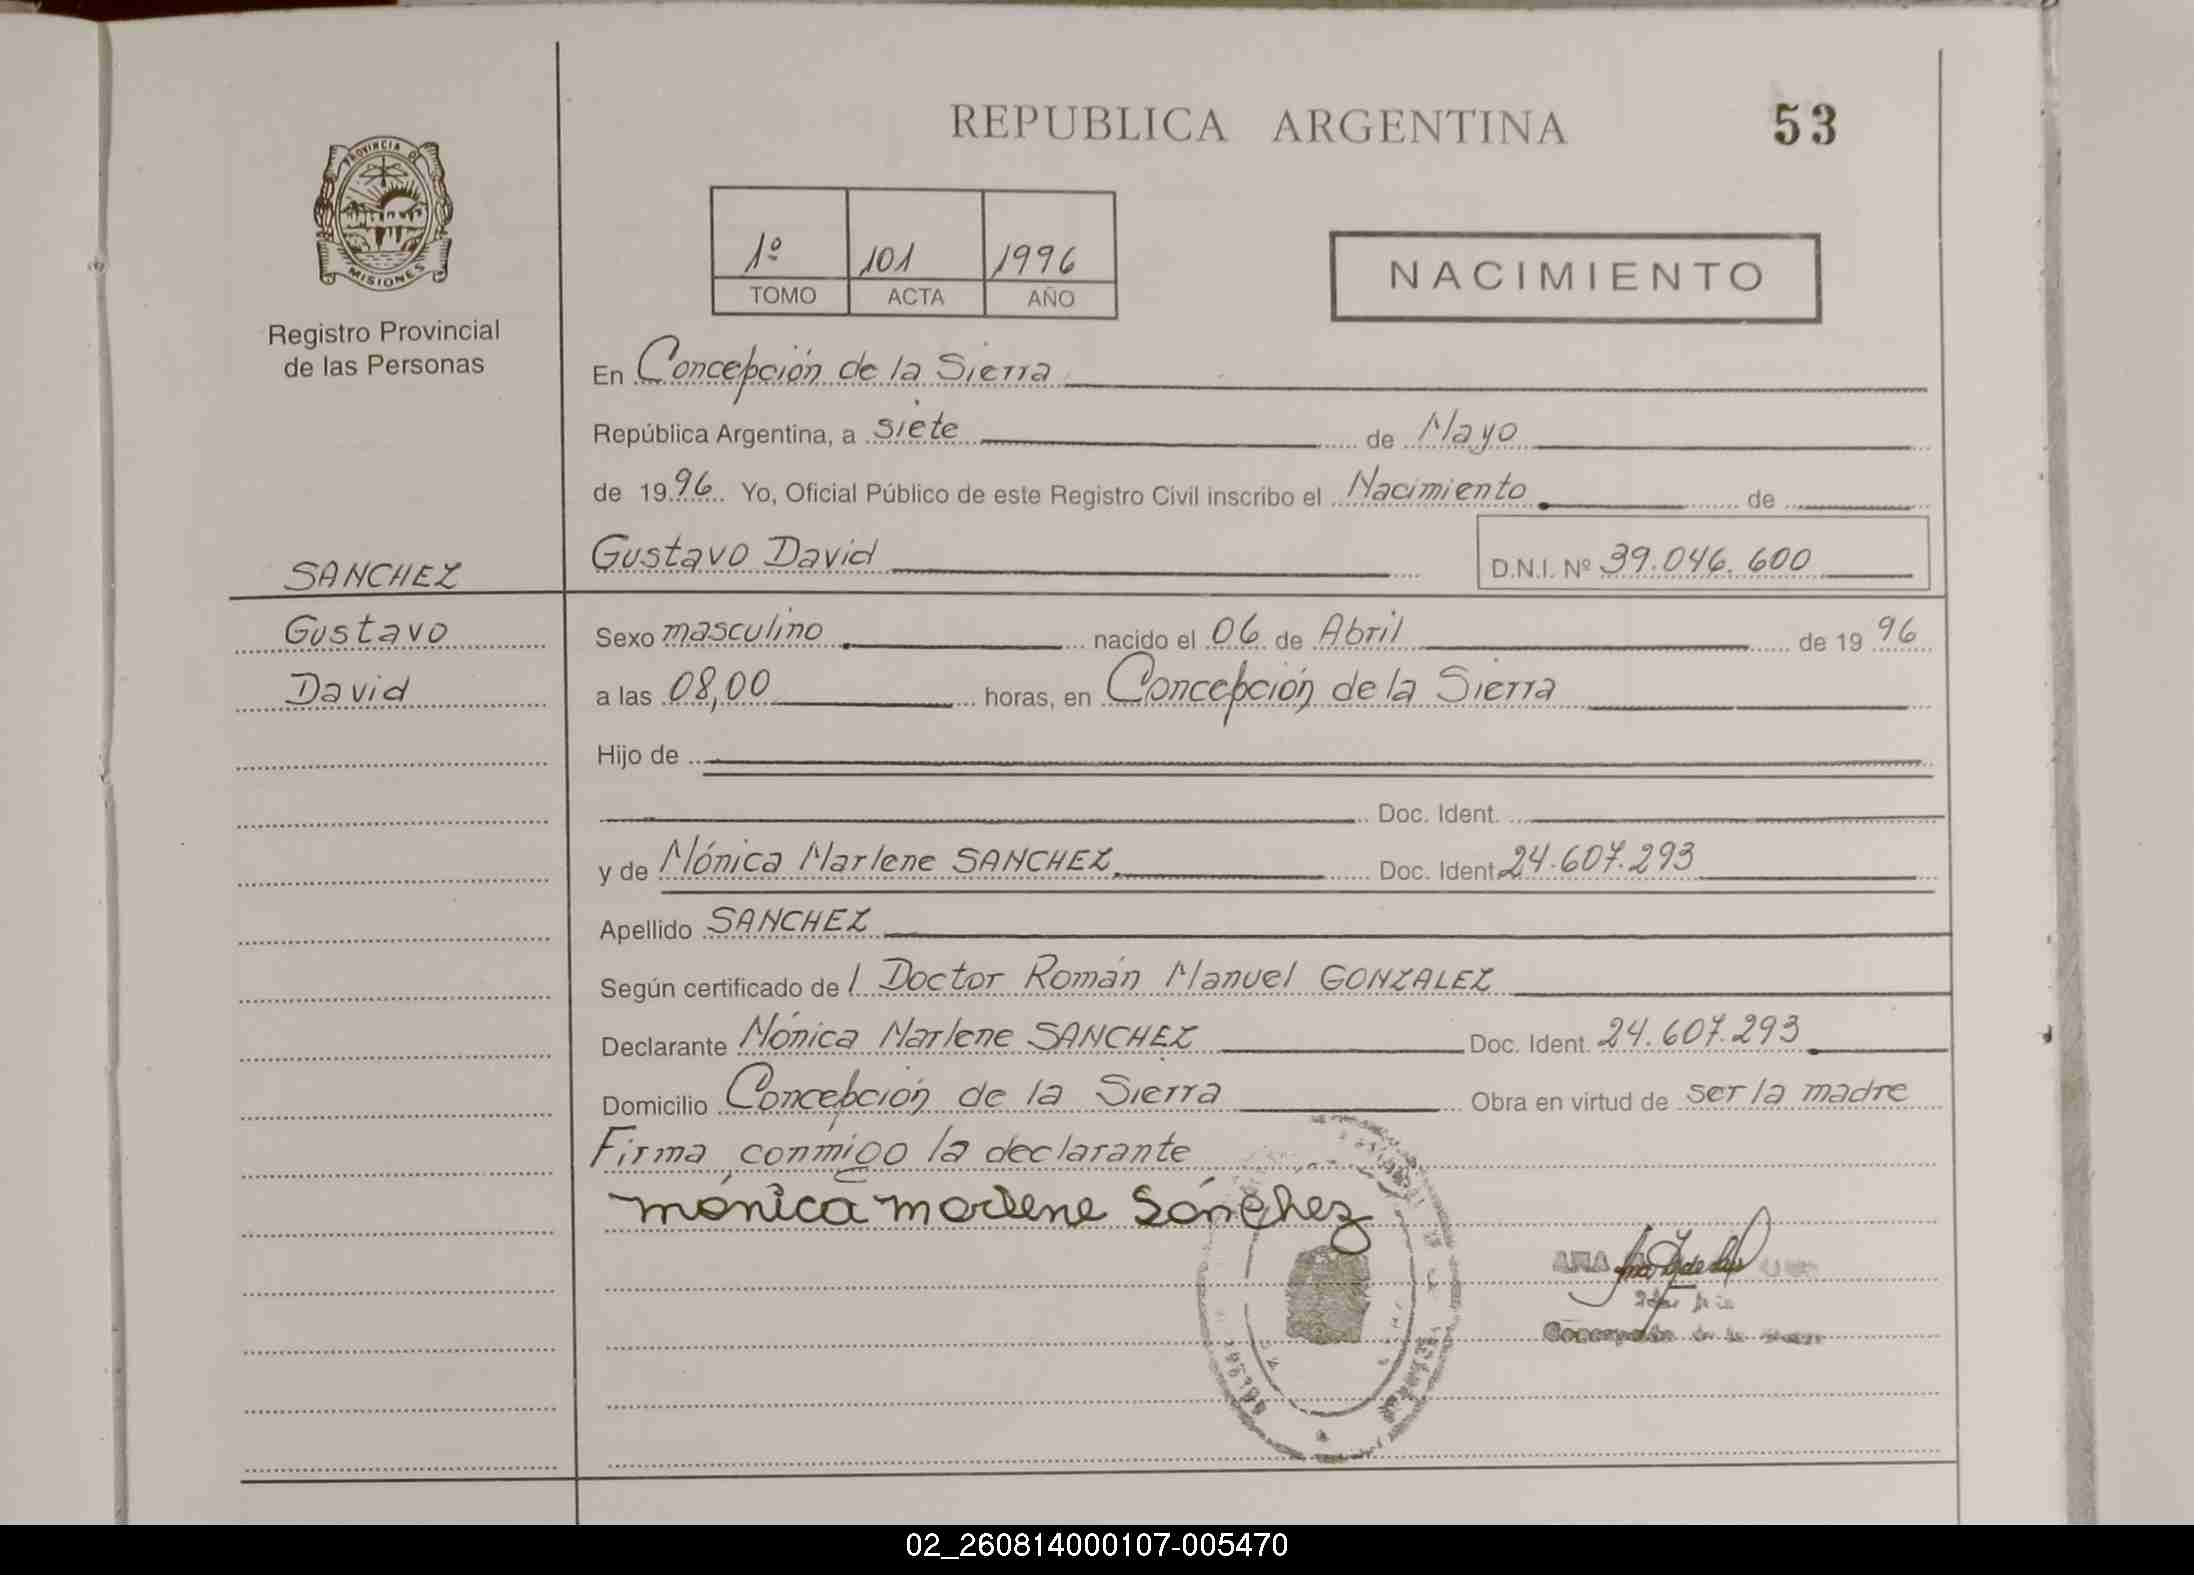 REPUBLICA ARGENTINA
53
PROVINCIA DE
MISIONES
Registro Provincial
de las Personas
1º 101 1996
TOMO ACTA AÑO
NACIMIENTO
En Concepción de la Sierra
República Argentina, a siete de Mayo
de 1996 Yo, Oficial Público de este Registro Civil inscribo el Nacimiento de
SANCHEZ
Gustavo David D.N.I. Nº 39.046.600
Gustavo
Sexo masculino nacido el 06 de Abril de 1996
David
a las 08,00 horas, en Concepción de la Sierra
Hijo de
Doc. Ident.
y de Mónica Marlene SANCHEZ Doc. Ident 24.607.293
Apellido SANCHEZ
Según certificado del Doctor Román Manuel GONZALEZ
Declarante Mónica Marlene SANCHEZ Doc. Ident. 24.607.293
Domicilio Concepción de la Sierra Obra en virtud de ser la madre
Firma conmigo la declarante
mónica marlene Sánchez
ANA
02_260814000107-005470